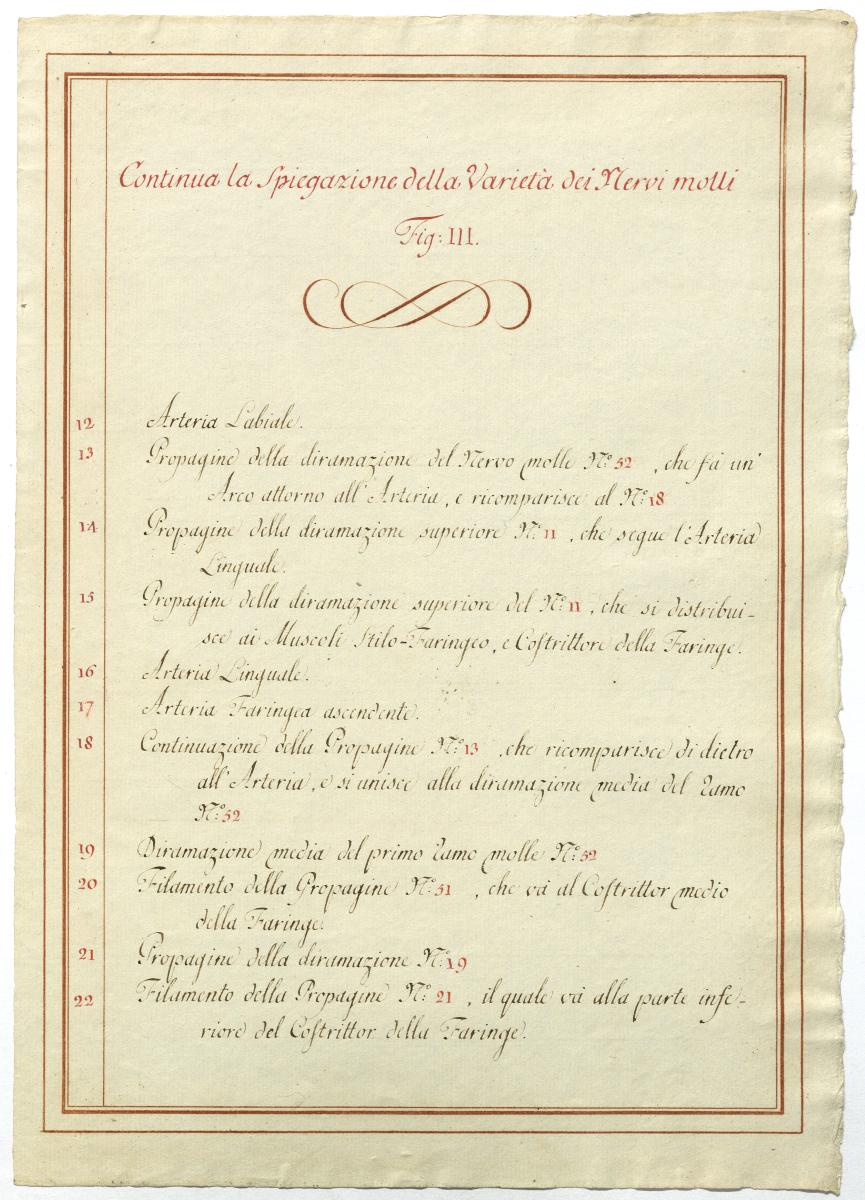 Continua la Spiegazione della Varietà dei Nervi molli
Fig: III.
12 Arteria Labiale.
13 Propagine della diramazione del Nervo molle N.º 52, che fà un'
Arco attorno all'Arteria, e ricomparisce al N.º 18
14 Propagine della diramazione superiore N.º 11, che segue l'Arteria
Linguale.
15 Propagine della diramazione superiore del N.º 11, che si distribui-
sce ai Muscoli Stilo-Faringeo, e Costrittore della Faringe.
16 Arteria Linguale.
17 Arteria Faringea ascendente.
18 Continuazione della Propagine N.º 13, che ricomparisce di dietro
all'Arteria, e si unisce alla diramazione media del ramo
N.º 52
19 Diramazione media del primo ramo molle N.º 52
20 Filamento della Propagine N.º 51, che và al Costrittor medio
della Faringe.
21 Propagine della diramazione N.º 19
22 Filamento della Propagine N.º 21, il quale và alla parte infe-
riore del Costrittor della Faringe.